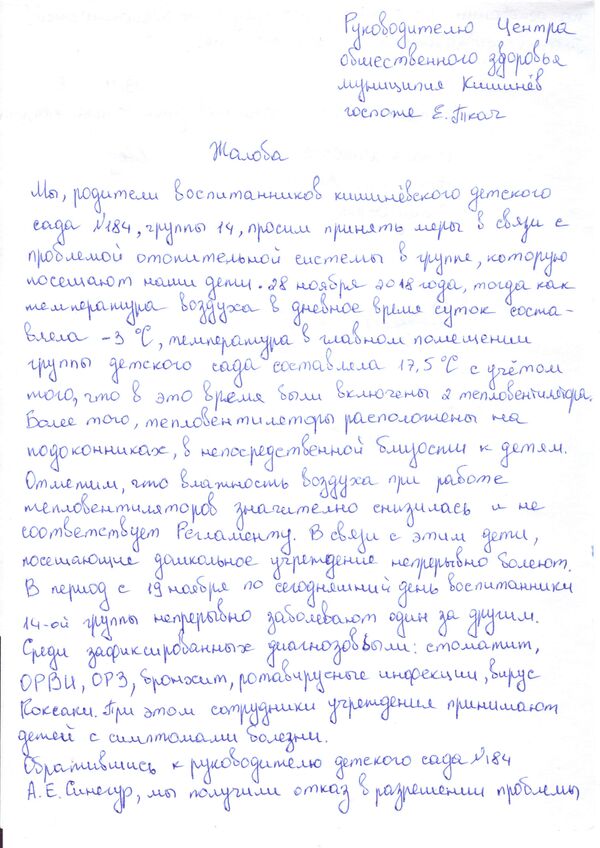 Руководителю Центра
общественного здоровья
муниципия Кишинёв
госпоже Е. Ткач
Жалоба
Мы, родители воспитанников кишинёвского детского
сада №184, группы 14, просим принять меры в связи с
проблемой отопительной системы в группе, которую
посещают наши дети. 28 ноября 2018 года, тогда как
температура воздуха в дневное время суток соста-
вляла -3 °С, температура в главном помещении
группы детского сада составляла 17,5 °С с учётом
того, что в это время были включены 2 тепловентилятора.
Более того, тепловентиляторы расположены на
подоконниках, в непосредственной близости к детям.
Отметим, что влажность воздуха при работе
тепловентиляторов значительно снизилась и не
соответствует Регламенту. В связи с этим дети,
посещающие дошкольное учреждение непрерывно болеют.
В период с 19 ноября по сегодняшний день воспитанники
14-ой группы непрерывно заболевают один за другим.
Среди зафиксированных диагнозов были: стоматит,
ОРВИ, ОРЗ, бронхит, ротавирусные инфекции, вирус
Коксаки. При этом сотрудники учреждения принимают
детей с симптомами болезни.
Обратившись к руководителю детского сада №184
А. Е. Синегур, мы получили отказ в разрешении проблемы